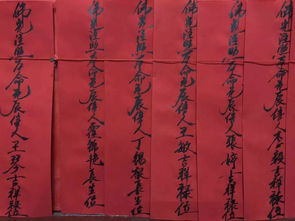 佛光注照本命元辰信人吉祥禄位
佛光注照本命元辰信人張婷吉祥禄位
佛光注照本命元辰信人王敏吉祥禄位
佛光注照本命元辰信人丁長生位
佛光注照本命元辰信人長生位
佛光注照本命元辰信人王琴吉祥禄位